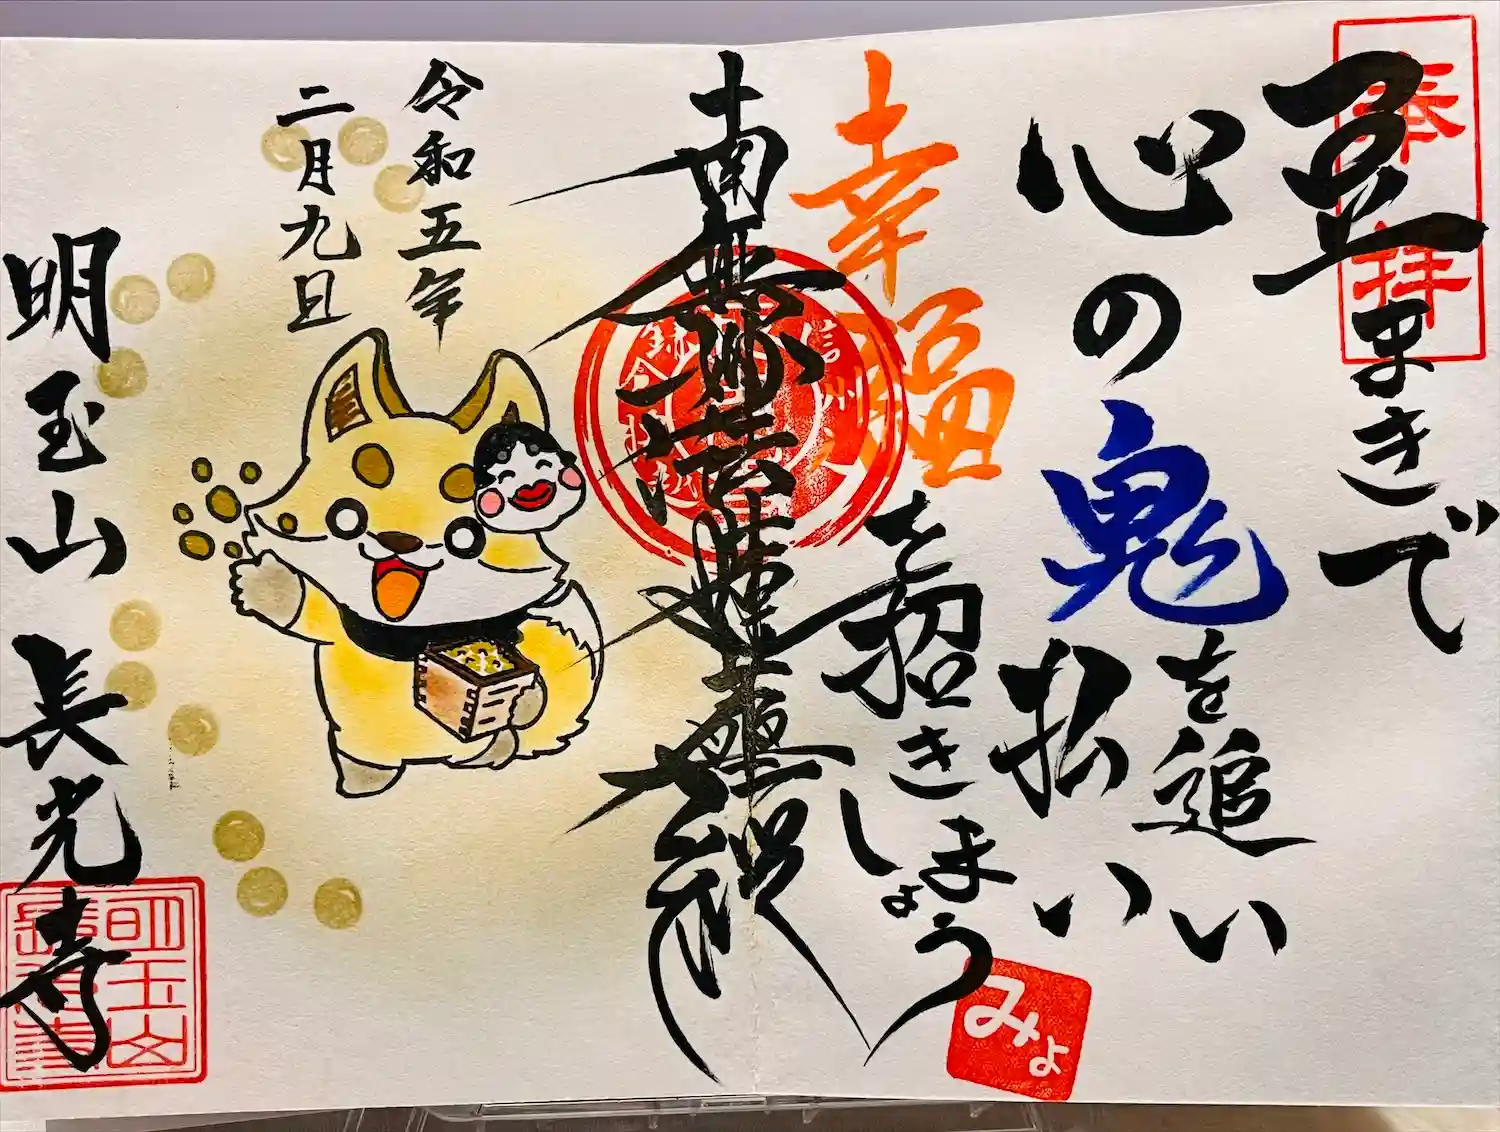 奉拝
豆まきで
心の鬼を追い
払い
幸福を招きましょう
みよ
南無妙法蓮華経
令和五年
二月九日
明玉山 長光寺
明玉山
長光寺